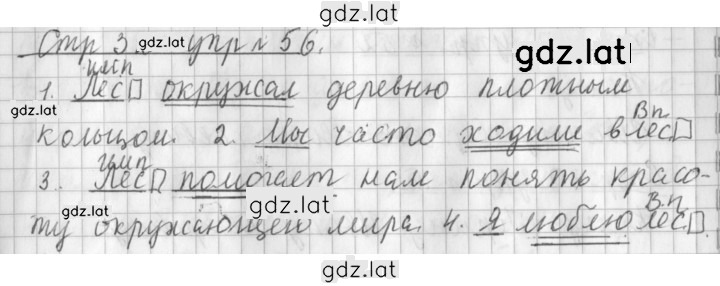 gdz.lat
Стр 3. упр № 56.
gdz.lat gdz.lat
им п
1. Лес окружал деревню плотным
gdz.lat
В п
кольцом. 2. Мы часто ходили в лес
им п
3. Лес помогает нам понять красо-
gdz.lat gdz.lat В. п
ту окружающего мира. 4. Я люблю лес.
gdz.lat